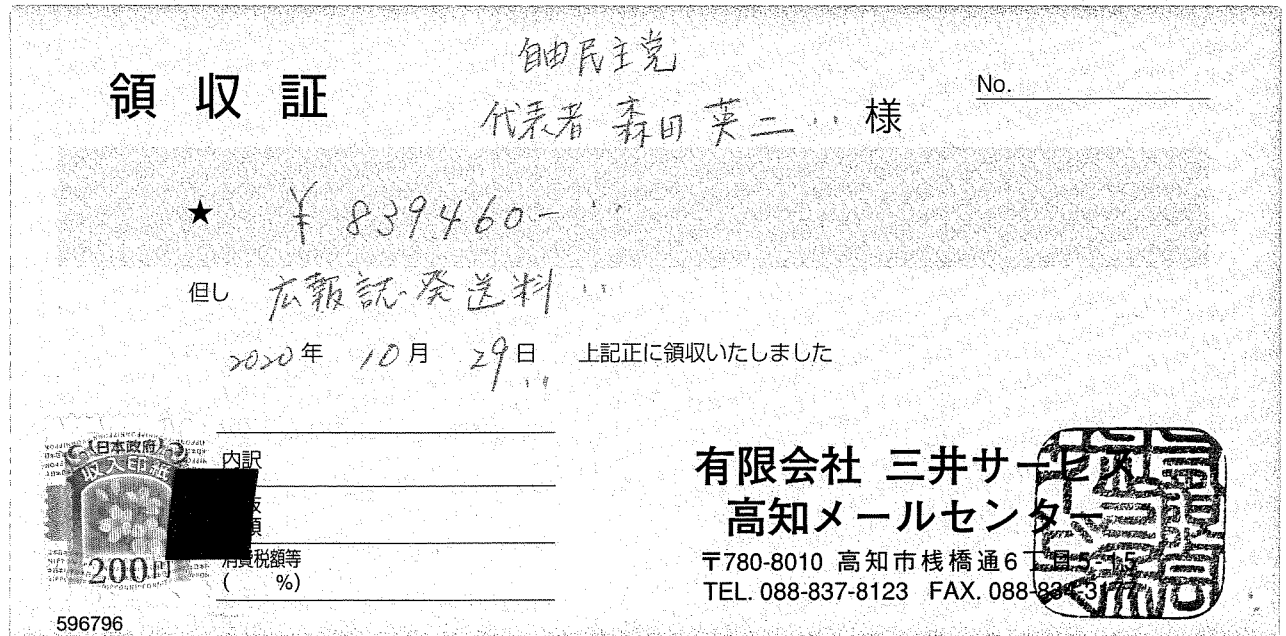 自由民主党
領収証
代表者 森田英二 様
No.
★ ¥839460-
但し 広報誌発送料
2020年 10月 29日 上記正に領収いたしました
日本政府
収入印紙
200円
内訳
消費税額等
( %)
有限会社 三井サービス
高知メールセンター
〒780-8010 高知市桟橋通6丁目5-15
TEL. 088-837-8123 FAX. 088-
596796